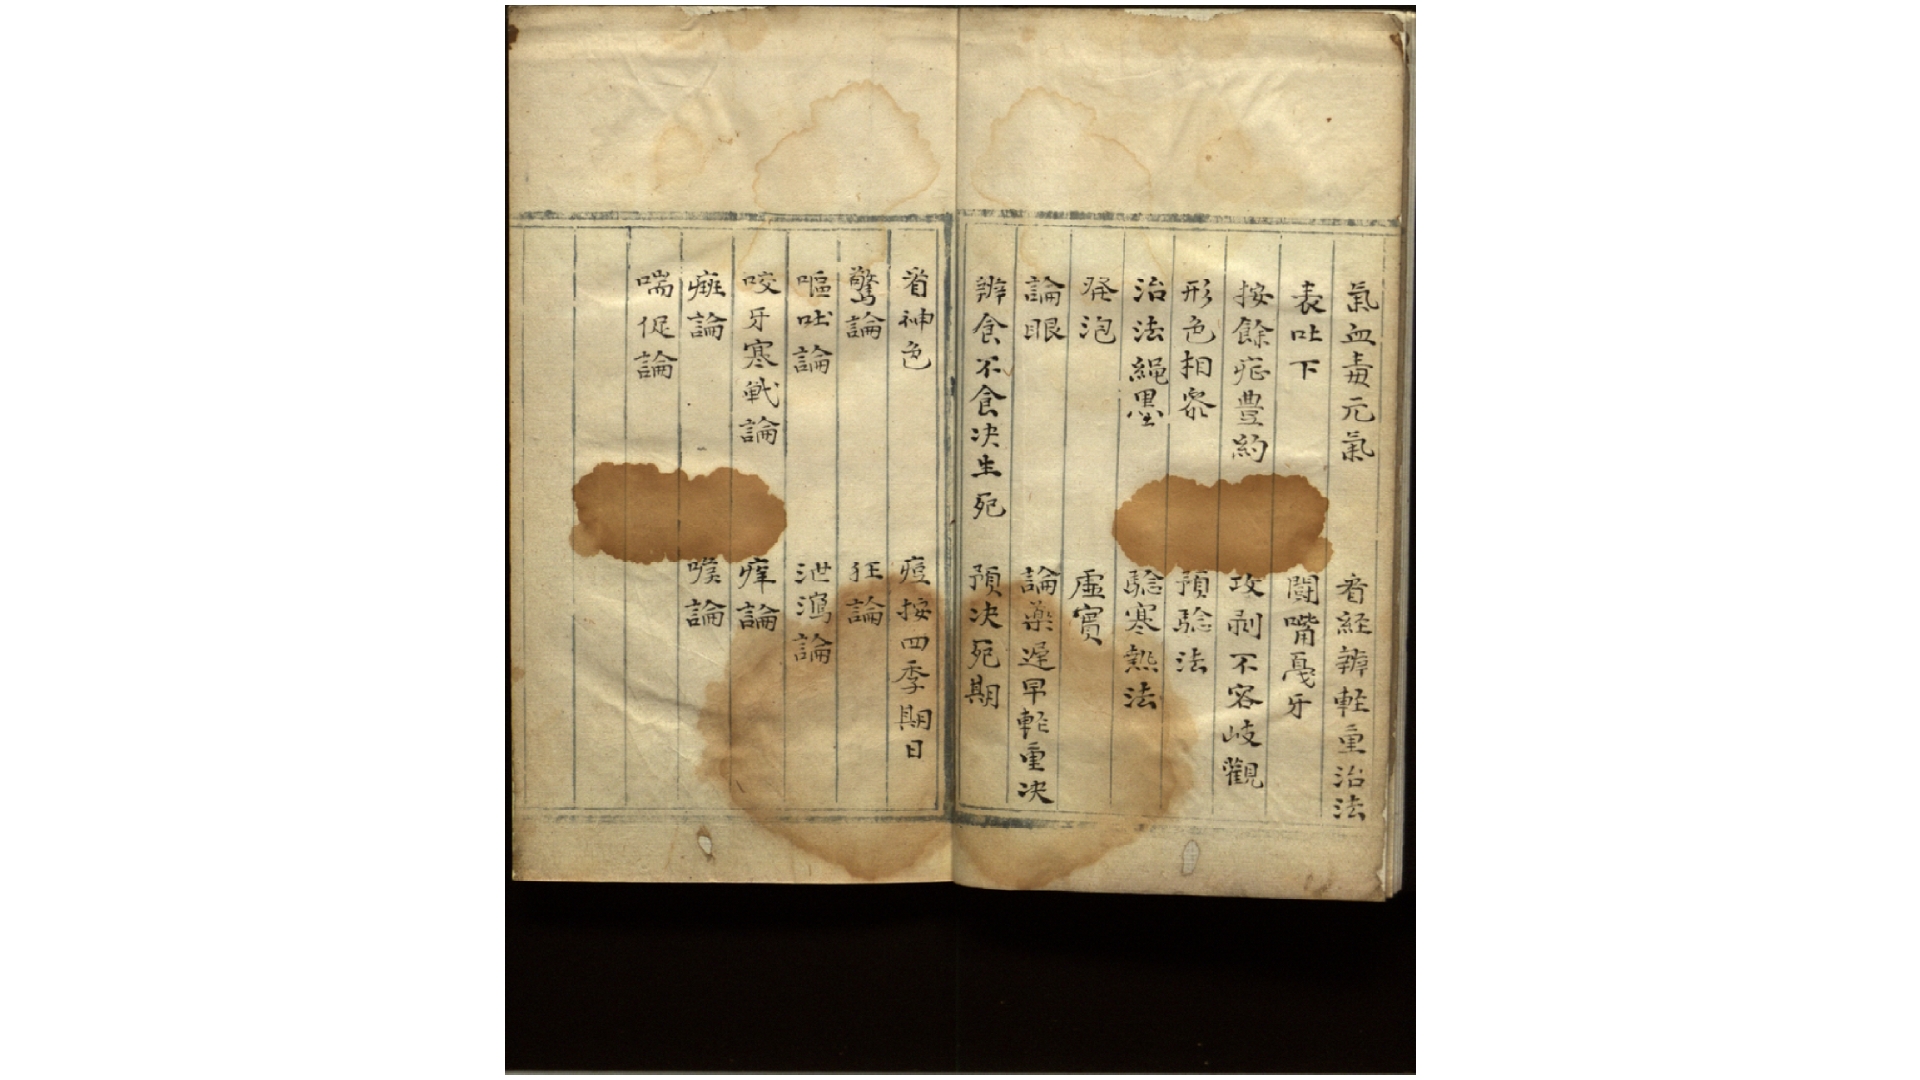 氣血毒元氣　看経辨輊重治法
表吐下　闘嘴戞牙
按餘疟豊約　攻剥不容岐觀
形色相參　預騐法
治法縄墨　騐寒熱法
発泡　虛實
論眼　論藥遅早輊重決
辨食不食决生死　預决死期
看神色　痘按四季期日
驚論　狂論
嘔吐論　泄瀉論
咬牙寒戦論　痒論
癍論　喉論
喘促論